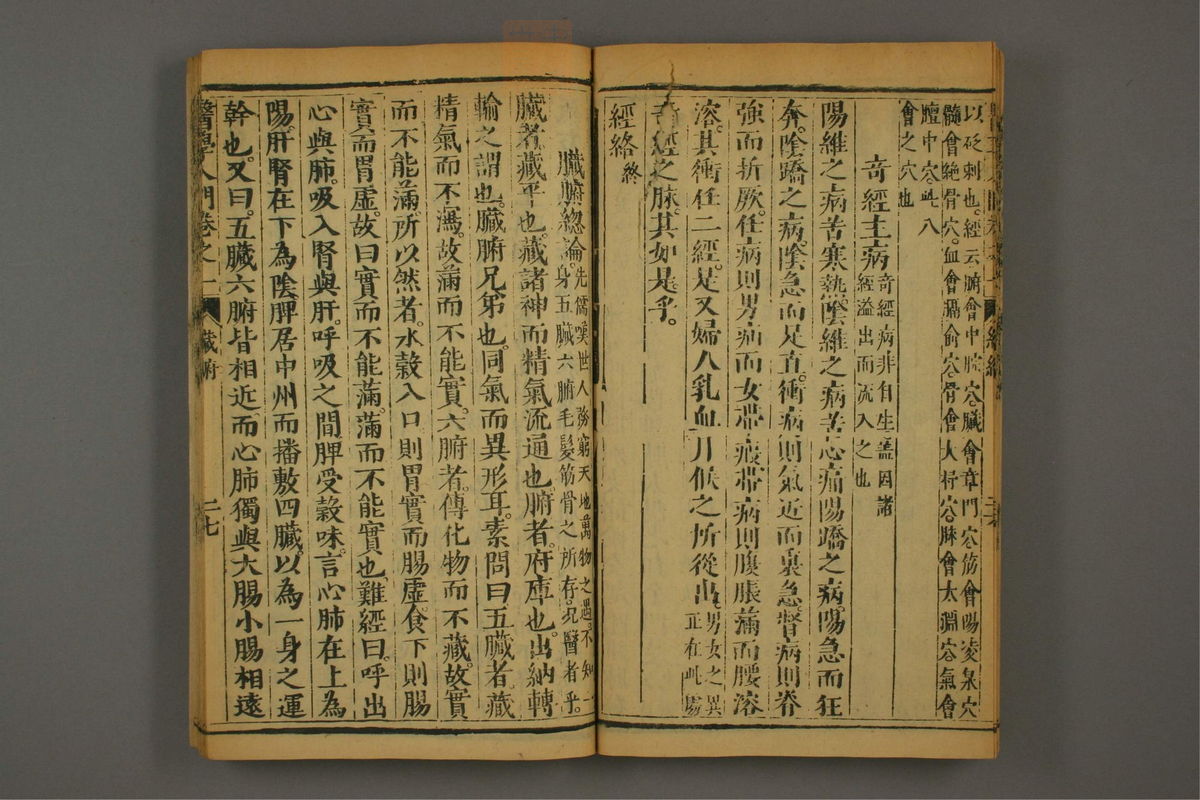 以砭刺也經云腑會中脘穴臟會章門穴筋會陽凌泉穴
髓會絕骨穴血會膈俞穴骨會大杼穴脉會太淵穴氣會
膻中穴此八
會之穴也
奇經主病
奇經病非自生蓋因諸
經溢出而流入之也
陽維之病苦寒熱陰維之病苦心痛陽蹻之病陽急而狂
奔陰蹻之病陰急而足直衝病則氣逆而裏急督病則脊
強而折厥任病則男疝而女帶瘕帶病則腹脹滿而腰溶
溶其衝任二經是又婦人乳血月候之所從出
男女之異
正在此處
奇經之脉其如是乎
經絡終
臟腑總論
先儒嘆世人務窮天地萬物之理不知一
身五臟六腑毛髮筋骨之所存況醫者乎
臟者藏平也藏諸神而精氣流通也腑者府庫也出納轉
輸之謂也臟腑兄弟也同氣而異形耳素問曰五臟者藏
精氣而不瀉故滿而不能實六腑者傳化物而不藏故實
而不能滿所以然者水穀入口則胃實而腸虛食下則腸
實而胃虛故曰實而不能滿滿而不能實也難經曰呼出
心與肺吸入腎與肝呼吸之間脾受穀味言心肺在上為
陽肝腎在下為陰脾居中州而播敷四臟以為一身之運
幹也又曰五臟六腑皆相近而心肺獨與大腸小腸相遠
醫學入門卷之一 臟腑 二七